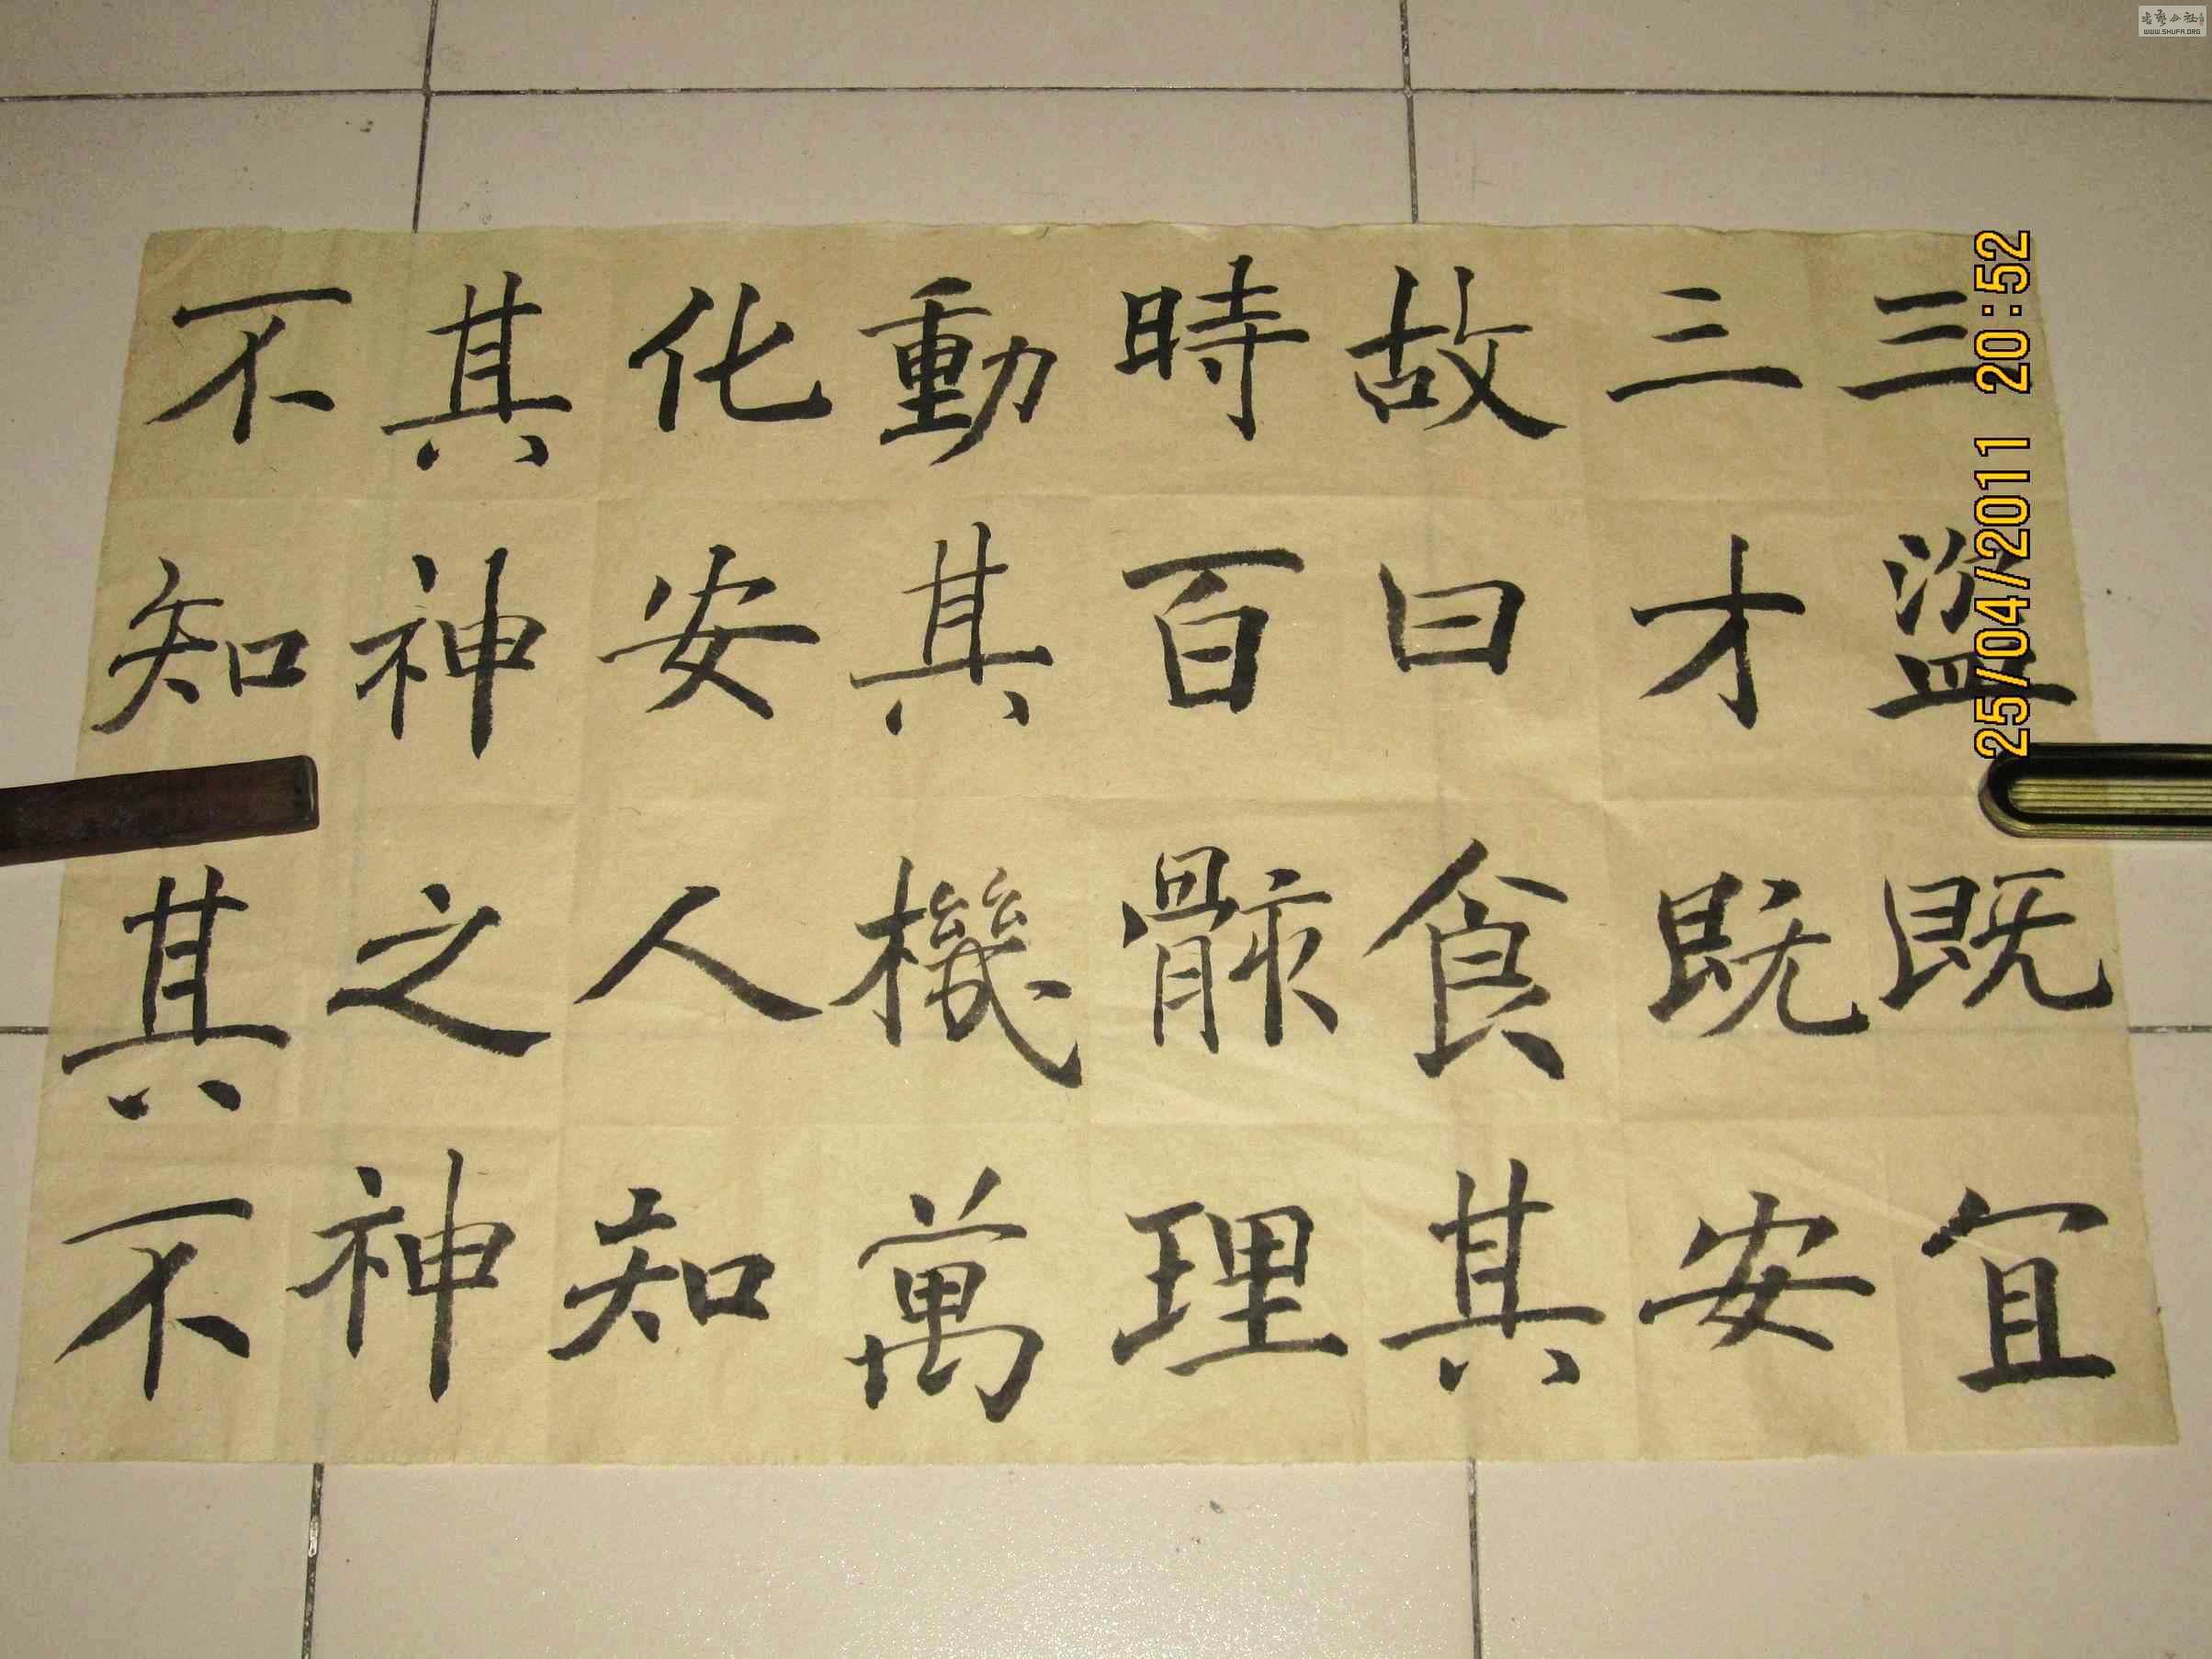 三盜既宜
三才既安
故曰食其
時百骸理
動其機萬
化安人知
其神之神
不知其不
25/04/2011 20:52
WWW.SHUFA.ORG